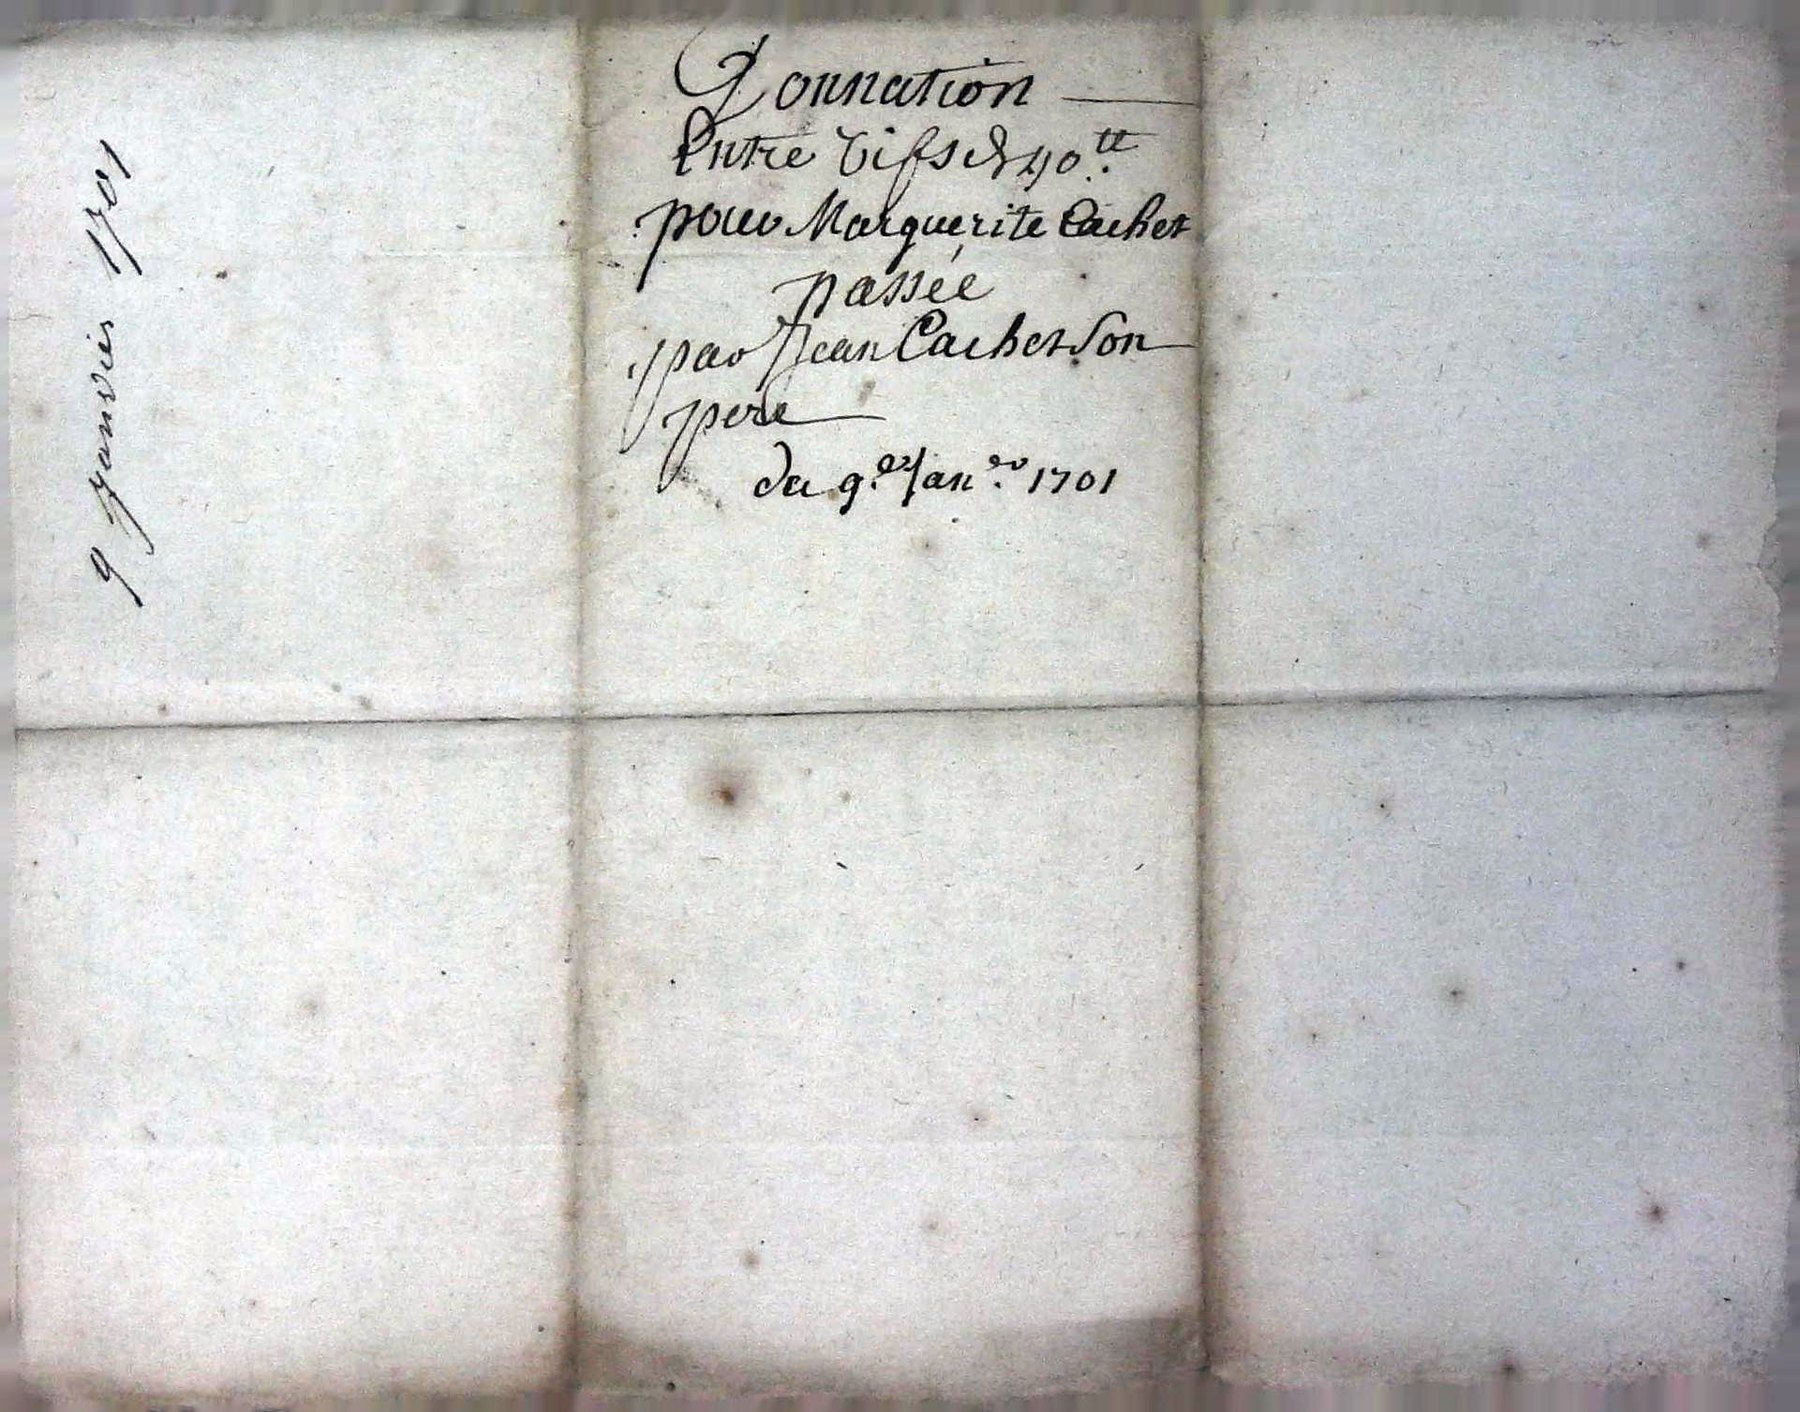 Donnation
Entre vifs de 40 ₶
pour Marguerite Cachet
passée
par Jean Cachet Son
pere
du 9.e Jan.er 1701
9 Janvier 1701